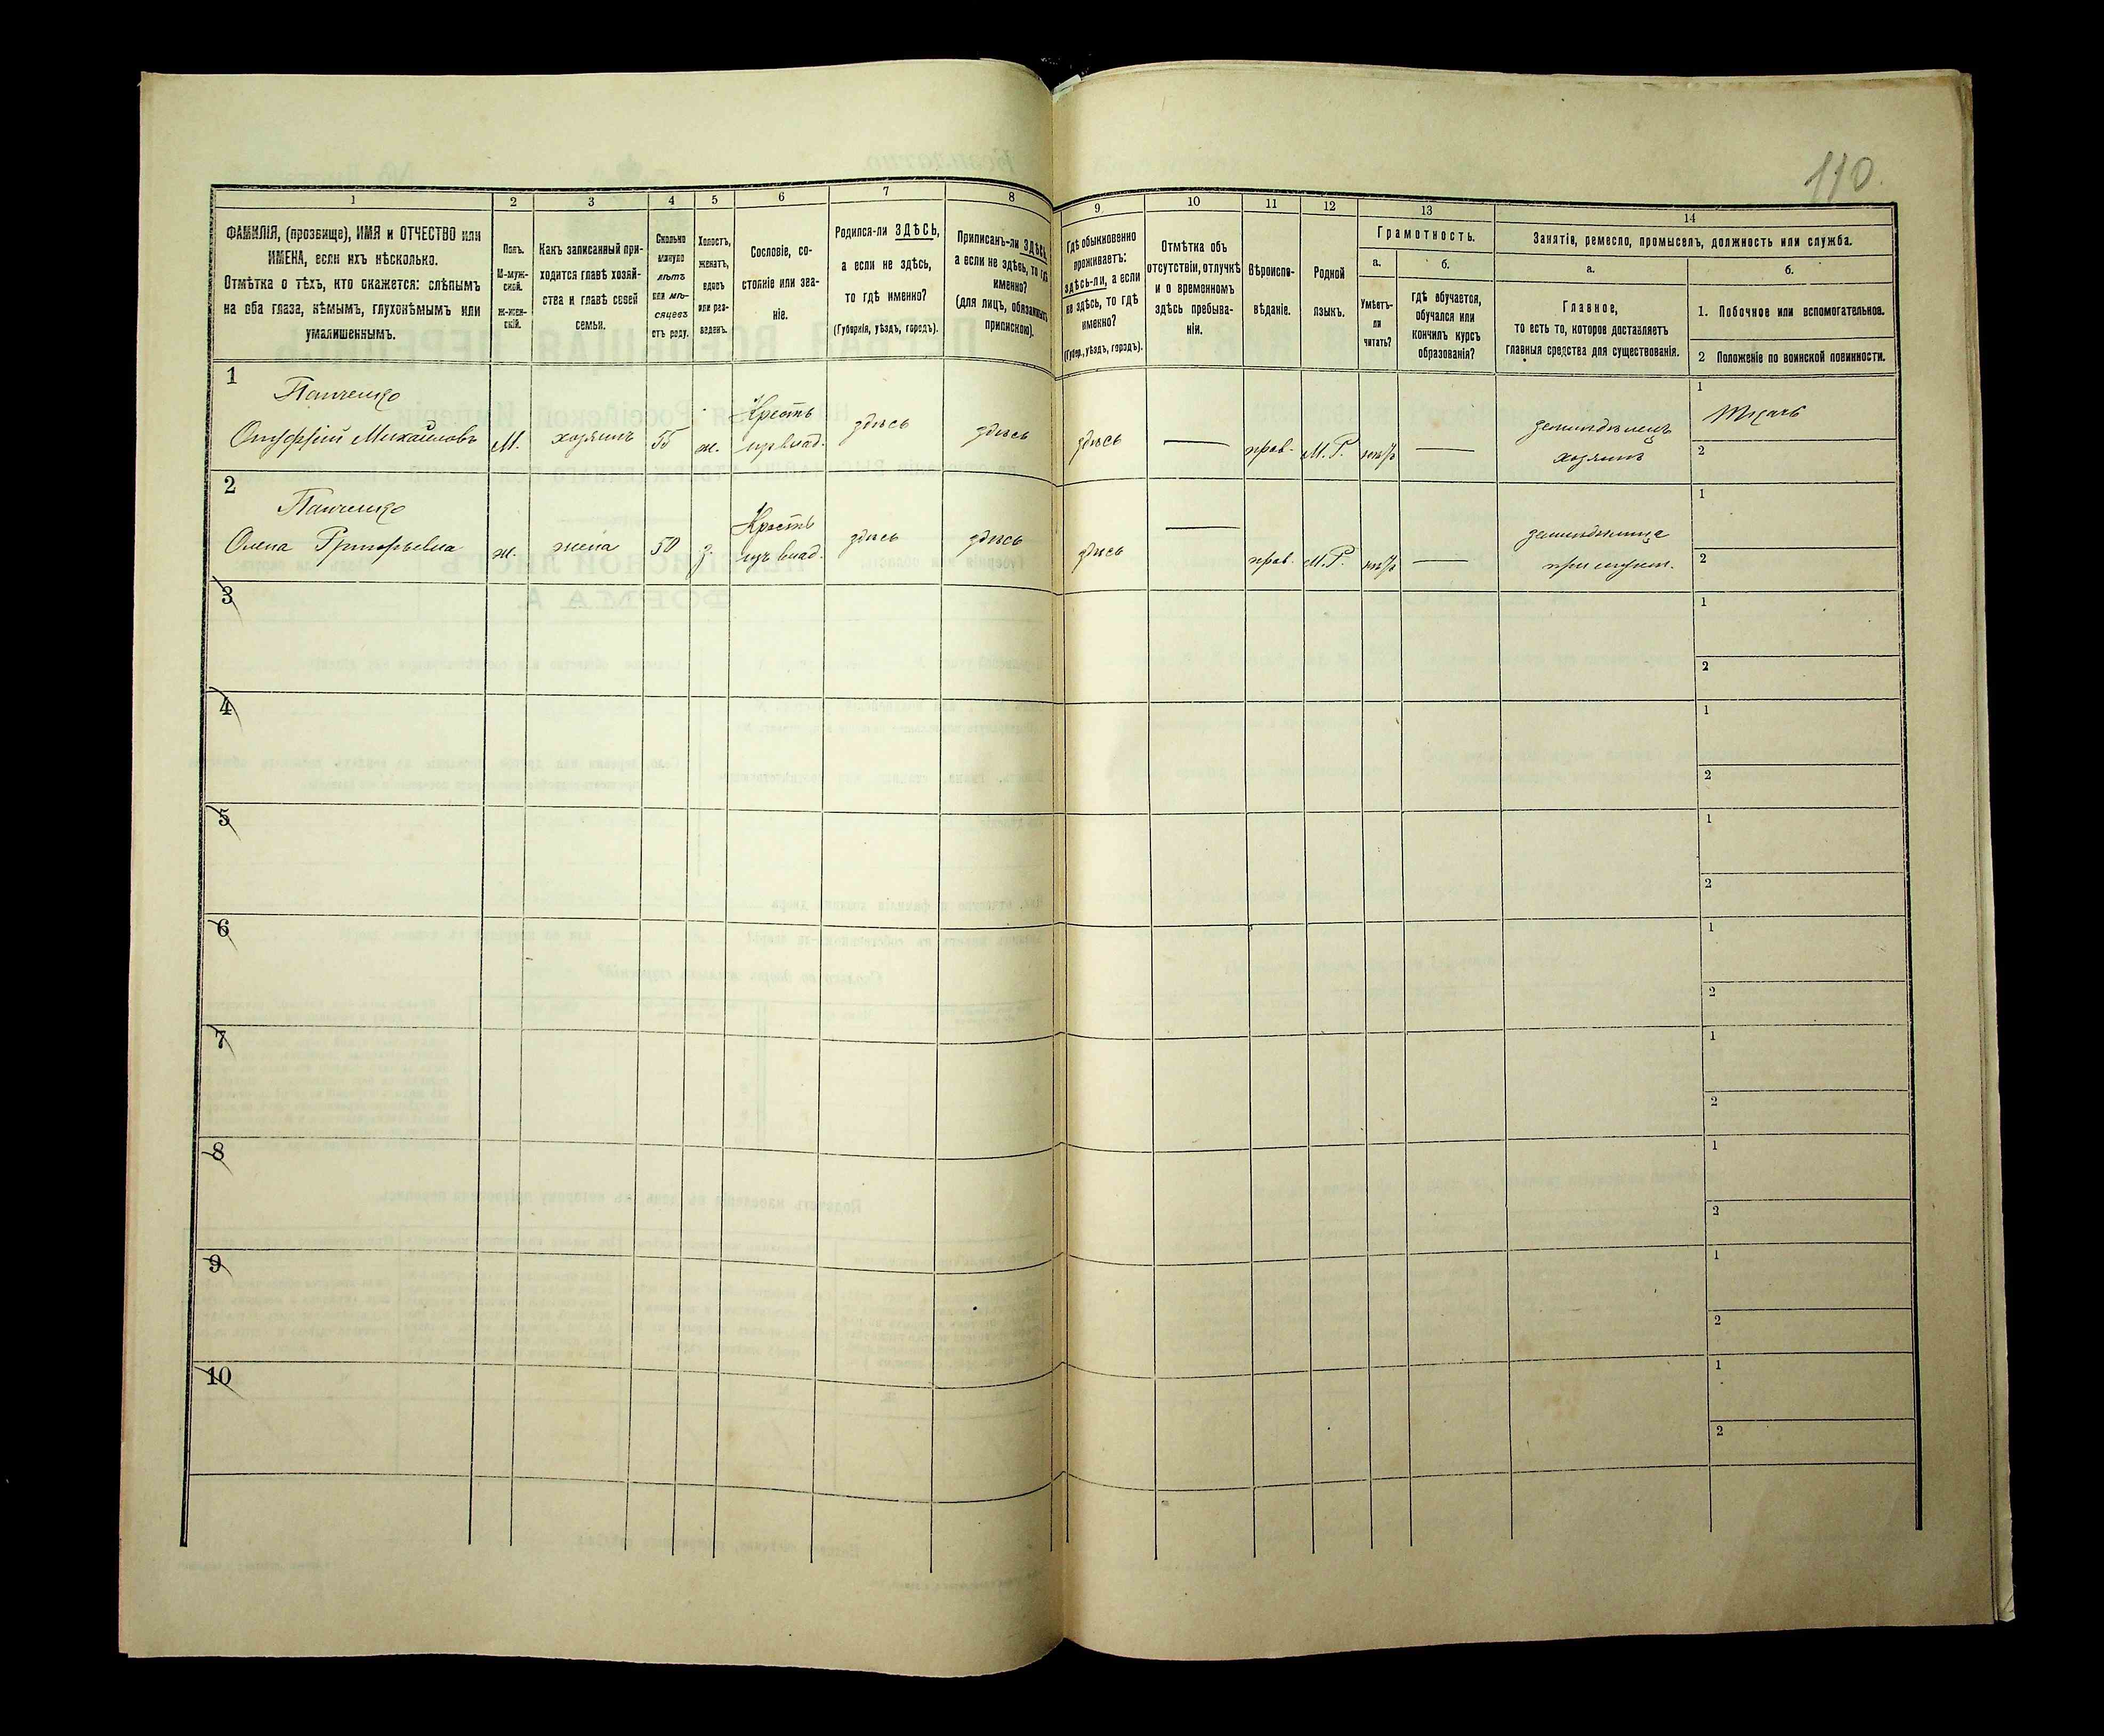 110.
1
2
3
4
5
6
7
8
9
10
11
12
13
14
ФАМИЛІЯ, (прозвище), ИМЯ и ОТЧЕСТВО или
ИМЕНА, если ихъ нѣсколько.
Отмѣтка о тѣхъ, кто окажется: слѣпымъ
на оба глаза, нѣмымъ, глухонѣмымъ или
умалишеннымъ.
Полъ.
М-муж-
ской.
Ж-жен-
скій.
Какъ записанный при-
ходится главѣ хозяй-
ства и главѣ своей
семьи.
Сколько
минуло
лѣтъ
или мѣ-
сяцевъ
отъ роду.
Холостъ,
женатъ,
вдовъ
или раз-
веденъ.
Сословіе, со-
стояніе или зва-
ніе.
Родился-ли ЗДѢСЬ,
а если не здѣсь,
то гдѣ именно?
(Губернія, уѣздъ, городъ).
Приписанъ-ли ЗДѢСЬ,
а если не здѣсь, то гдѣ
именно?
(для лицъ, обязанныхъ
припискою).
Гдѣ обыкновенно
проживаетъ:
здѣсь-ли, а если
не здѣсь, то гдѣ
именно?
(Губер., уѣздъ, городъ).
Отмѣтка объ
отсутствіи, отлучкѣ
и о временномъ
здѣсь пребыва-
ніи.
Вѣроиспо-
вѣданіе.
Родной
языкъ.
Грамотность.
а.
Умѣетъ-
ли
читать?
б.
гдѣ обучается,
обучался или
кончилъ курсъ
образованія?
Занятіе, ремесло, промыселъ, должность или служба.
а.
Главное,
то есть то, которое доставляетъ
главныя средства для существованія.
б.
1. Побочное или вспомогательное.
2 Положеніе по воинской повинности.
1
Панченко
Онуфрій Михайловъ
М.
хозяинъ
55
ж.
Крестъ
изъ влад.
здѣсь
здѣсь
здѣсь
—
прав.
М. Р.
нѣтъ
—
земледѣлецъ
хозяинъ
1
Ткачъ
2
2
Панченко
Олена Григорьевна
ж.
жена
50
з.
Крестъ
изъ влад.
здѣсь
здѣсь
здѣсь
—
прав.
М. Р.
нѣтъ
—
земледѣлица
при
1
2
3
1
2
4
1
2
5
1
2
6
1
2
7
1
2
8
1
2
9
1
2
10
1
2